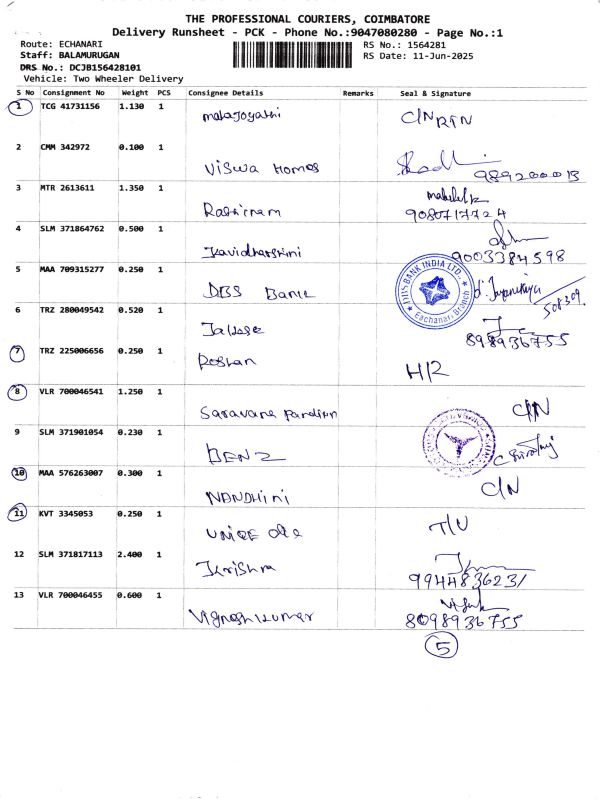 THE PROFESSIONAL COURIERS, COIMBATORE
Delivery Runsheet - PCK - Phone No.:9047080280 - Page No.:1
Route: ECHANARI RS No.: 1564281
Staff: BALAMURUGAN RS Date: 11-Jun-2025
DRS No.: DCJB156428101
Vehicle: Two Wheeler Delivery
S No Consignment No Weight PCS Consignee Details Remarks Seal & Signature
1 TCG 41731156 1.130 1 C/N RTN
2 CMM 342972 0.100 1 Viswa Homes
3 MTR 2613611 1.350 1 9080717724
4 SLM 371864762 0.500 1 Kavidharshini 9003384598
5 MAA 709315277 0.250 1 DBS Bank DBS BANK INDIA LTD., Eachanari Branch 508309
6 TRZ 280049542 0.520 1 898936755
7 TRZ 225006656 0.250 1 Roshan H/R
8 VLR 700046541 1.250 1 Saravana Pandian C/N
9 SLM 371901054 0.230 1 BENZ
10 MAA 576263007 0.300 1 NANDHini C/N
11 KVT 3345053 0.250 1 T/U
12 SLM 371817113 2.400 1 Krishna 9944836231
13 VLR 700046455 0.600 1 Vignesh Kumar 8098936755
5